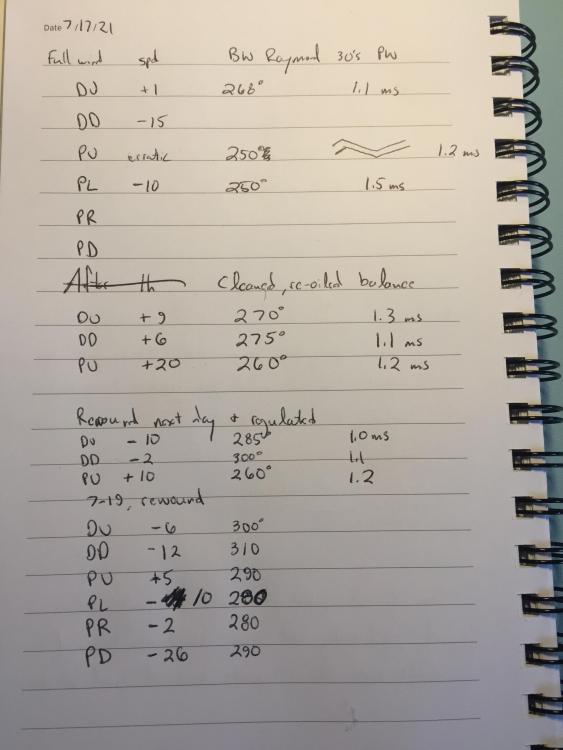 Date 7/17/21
Full wind spd BW Raymond 30's PW
DU +1 268° 1.1 ms
DD -15
PU erratic 250° 1.2 ms
PL -10 250° 1.5 ms
PR
PD
After th Cleaned, re-oiled balance
DU +9 270° 1.3 ms
DD +6 275° 1.1 ms
PU +20 260° 1.2 ms
Rewound next day + regulated
DU -10 285° 1.0 ms
DD -2 300° 1.1
PU +10 260° 1.2
7-19, rewound
DU -6 300°
DD -12 310
PU +5 290
PL - 10 280
PR -2 280
PD -26 290